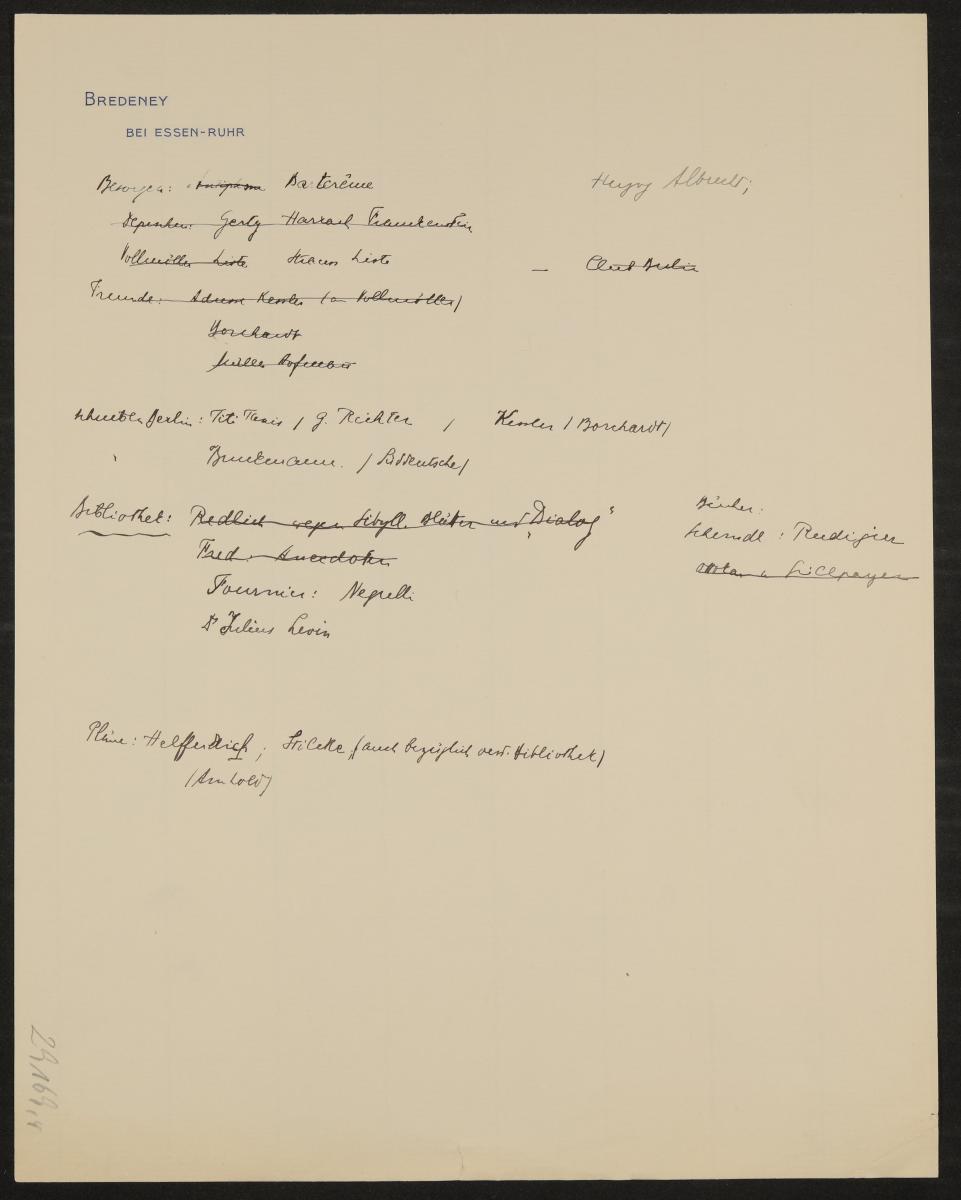 BREDENEY
BEI ESSEN-RUHR
Besorgen: Barterême
Herzog Albrecht;
Depeschen: Gerty Harrach Frankenstein
Vollmöller Liste Strauss Liste
— Club Berlin
Freunde: Adresse Kessler (an Vollmöller)
Borchardt
Müller Hofmann
schreiben Berlin: Titi Taxis / G. Richter / Kessler / Borchardt /
" Bruckmann. / Süddeutsche /
Bibliothek: Redlich wegen Sibyll. Blätter und "Dialog"
Bücher:
Fred: Anecdoten
Scherndl: Rudigier
Fournier: Negrelli
Dr Julius Levin
Pläne: Helfferich; Stilcke, (auch bezüglich oest. Bibliothek)
(Arnhold)
29,169,4